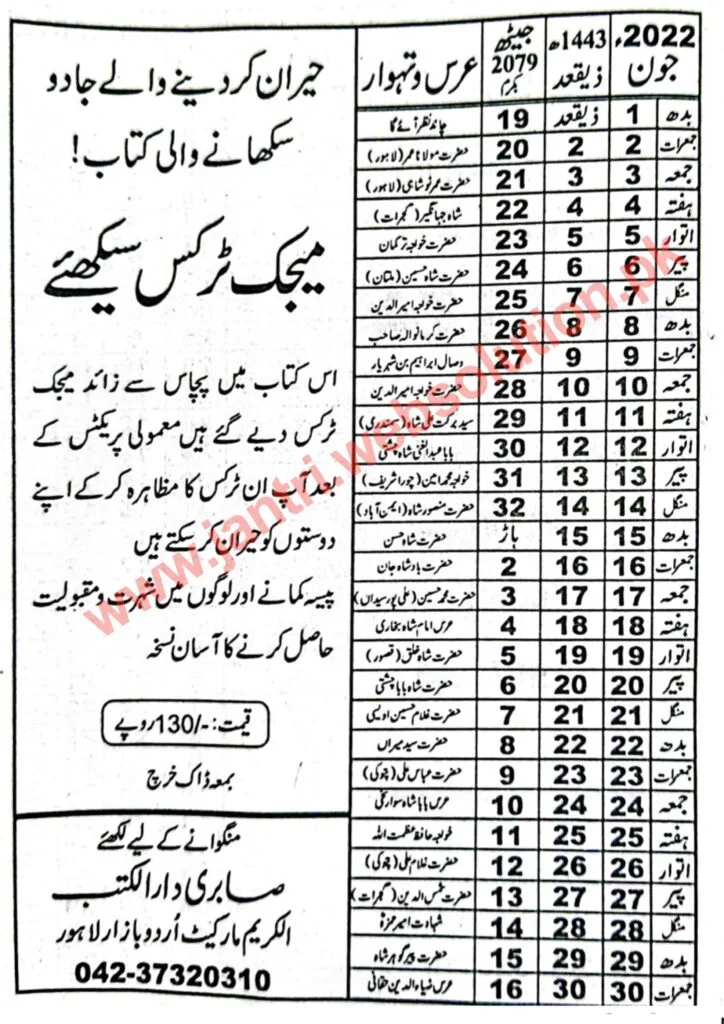 حیران کر دینے والے جادو
سکھانے والی کتاب!
میجک ٹرکس سیکھئے
اس کتاب میں پچاس سے زائد میجک
ٹرکس دیے گئے ہیں معمولی پریکٹس کے
بعد آپ ان ٹرکس کا مظاہرہ کر کے اپنے
دوستوں کو حیران کر سکتے ہیں
پیسہ کمانے اور لوگوں میں شہرت و مقبولیت
حاصل کرنے کا آسان نسخہ
قیمت: -/130 روپے
بمعہ ڈاک خرچ
منگوانے کے لیے لکھئے
صابری دارالکتب
الکریم مارکیٹ اُردو بازار لاہور
042-37320310
2022ء جون 1443ھ ذیقعد جیٹھ 2079 بکرم عرس و تہوار
بدھ 1 ذیقعد 19 چاند نظر آئے گا
جمعرات 2 2 20 حضرت مولانا عمر (لاہور)
جمعہ 3 3 21 حضرت عمر نوشاہی (لاہور)
ہفتہ 4 4 22 شاہ جہانگیر (گجرات)
اتوار 5 5 23 حضرت خواجہ ترکمان
پیر 6 6 24 حضرت شاہ حسین (ملتان)
منگل 7 7 25 حضرت خواجہ امیر الدین
بدھ 8 8 26 حضرت کرمانوالہ صاحب
جمعرات 9 9 27 وصال ابراہیم بن شہریار
جمعہ 10 10 28 حضرت خواجہ امیر الدین
ہفتہ 11 11 29 سید برکت علی شاہ (سمندری)
اتوار 12 12 30 بابا عبدالغنی شاہ چشتی
پیر 13 13 31 خواجہ محمد امین (چورا شریف)
منگل 14 14 32 حضرت منصور شاہ (ایمن آباد)
بدھ 15 15 ہاڑ حضرت شاہ حسن
جمعرات 16 16 2 حضرت بادشاہ جان
جمعہ 17 17 3 حضرت محمد حسین (علی پور سیداں)
ہفتہ 18 18 4 عرس امام شاہ بخاری
اتوار 19 19 5 حضرت شاہ خلق (قصور)
پیر 20 20 6 حضرت شاہ بابا چشتی
منگل 21 21 7 حضرت غلام حسین اویسی
بدھ 22 22 8 حضرت سید میراں
جمعرات 23 23 9 حضرت عباس علی (چوکی)
جمعہ 24 24 10 عرس بابا شاہ سوار
ہفتہ 25 25 11 خواجہ حافظ عظمت اللہ
اتوار 26 26 12 حضرت غلام علی (چوکی)
پیر 27 27 13 حضرت شمس الدین (گجرات)
منگل 28 28 14 شہادت امیر حمزہ
بدھ 29 29 15 حضرت پیر گوہر شاہ
جمعرات 30 30 16 عرس ضیاء الدین حقانی
www.jantri.websolution.pk